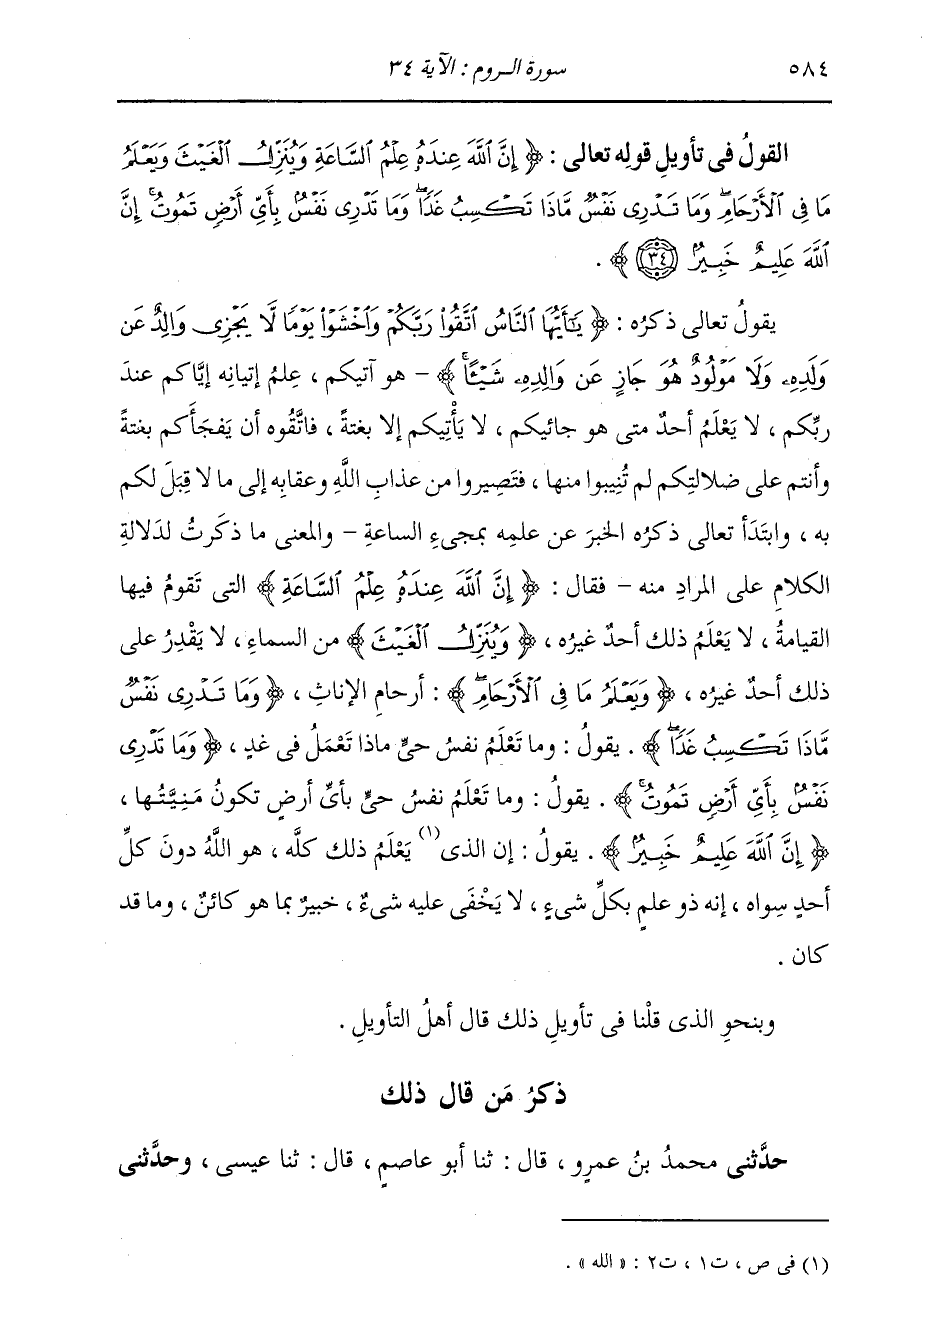 ٥٨٤ سورة الروم : الآية ٣٤
القولُ فى تأويلِ قولِه تعالى : ﴿ إِنَّ ٱللَّهَ عِندَهُۥ عِلْمُ ٱلسَّاعَةِ وَيُنَزِّلُ ٱلْغَيْثَ وَيَعْلَمُ
مَا فِى ٱلْأَرْحَامِۖ وَمَا تَدْرِى نَفْسٌ مَّاذَا تَكْسِبُ غَدًاۖ وَمَا تَدْرِى نَفْسٌۢ بِأَىِّ أَرْضٍ تَمُوتُۚ إِنَّ
ٱللَّهَ عَلِيمٌ خَبِيرٌۢ ﴿٣٤﴾ ﴾ .
يقولُ تعالى ذكرُه : ﴿ يَٰٓأَيُّهَا ٱلنَّاسُ ٱتَّقُوا۟ رَبَّكُمْ وَٱخْشَوْا۟ يَوْمًا لَّا يَجْزِى وَالِدٌ عَن
وَلَدِهِۦ وَلَا مَوْلُودٌ هُوَ جَازٍ عَن وَالِدِهِۦ شَيْـًٔاۚ ﴾ - هو آتيكم ، عِلمُ إتيانِه إيَّاكم عندَ
ربِّكم ، لا يَعْلَمُ أحدٌ متى هو جائيكم ، لا يَأْتِيكم إلا بغتةً ، فاتَّقُوه أن يَفجَأَكم بغتةً
وأنتم على ضلالتِكم لم تُنِيبوا منها ، فتَصِيروا من عذابِ اللَّهِ وعقابِه إلى ما لا قِبَلَ لكم
به ، وابتَدَأ تعالى ذكرُه الخبرَ عن علمِه بمجىءِ الساعةِ - والمعنى ما ذكَرتُ لدَلالةِ
الكلامِ على المرادِ منه - فقال : ﴿ إِنَّ ٱللَّهَ عِندَهُۥ عِلْمُ ٱلسَّاعَةِ ﴾ التى تَقومُ فيها
القيامةُ ، لا يَعْلَمُ ذلك أحدٌ غيرُه ، ﴿ وَيُنَزِّلُ ٱلْغَيْثَ ﴾ من السماءِ ، لا يَقْدِرُ على
ذلك أحدٌ غيرُه ، ﴿ وَيَعْلَمُ مَا فِى ٱلْأَرْحَامِۖ ﴾ : أرحامِ الإناثِ ، ﴿ وَمَا تَدْرِى نَفْسٌ
مَّاذَا تَكْسِبُ غَدًاۖ ﴾ . يقولُ : وما تَعْلَمُ نفسُ حىٍّ ماذا تَعْمَلُ فى غدٍ ، ﴿ وَمَا تَدْرِى
نَفْسٌۢ بِأَىِّ أَرْضٍ تَمُوتُۚ ﴾ . يقولُ : وما تَعْلَمُ نفسُ حىٍّ بأىِّ أرضٍ تكونُ مَنِيَّتُها ،
﴿ إِنَّ ٱللَّهَ عَلِيمٌ خَبِيرٌۢ ﴾ . يقولُ : إن الذى(١) يَعْلَمُ ذلك كلَّه ، هو اللَّهُ دونَ كلِّ
أحدٍ سِواه ، إنه ذو علمٍ بكلِّ شىءٍ ، لا يَخْفَى عليه شىءٌ ، خبيرٌ بما هو كائنٌ ، وما قد
كان .
وبنحوِ الذى قلْنا فى تأويلِ ذلك قال أهلُ التأويلِ .
ذكرُ مَن قال ذلك
حدَّثنى محمدُ بنُ عمرٍو ، قال : ثنا أبو عاصمٍ ، قال : ثنا عيسى ، وحدَّثنى
(١) فى ص ، ت١ ، ت٢ : « الله » .